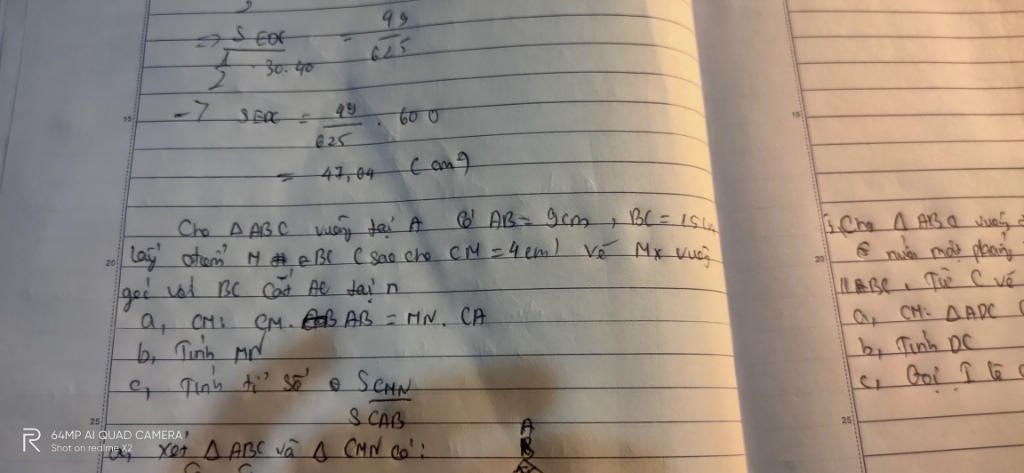 => S EDC = 99
1/2 . 30.40 625
-> S EDC = 49/625 . 600
= 47,04 (cm²)
Cho Δ ABC vuông tại A có AB = 9cm, BC = 15cm
lấy điểm M ∈ BC (sao cho CM = 4cm) vẽ Mx vuông
góc với BC cắt AC tại n
a, CM: CM. AB = MN. CA
b, Tính MN
c, Tính tỉ số S CMN
S CAB
a, Xét Δ ABC và Δ CMN có:
A
B
Cho Δ ABC vuông
nửa mặt phẳng
// BC, Từ C vẽ
a, CM: Δ ADC
b, Tính DC
c, Gọi I là
15
20
25
15
20
25
R
64MP AI QUAD CAMERA
Shot on realme X2